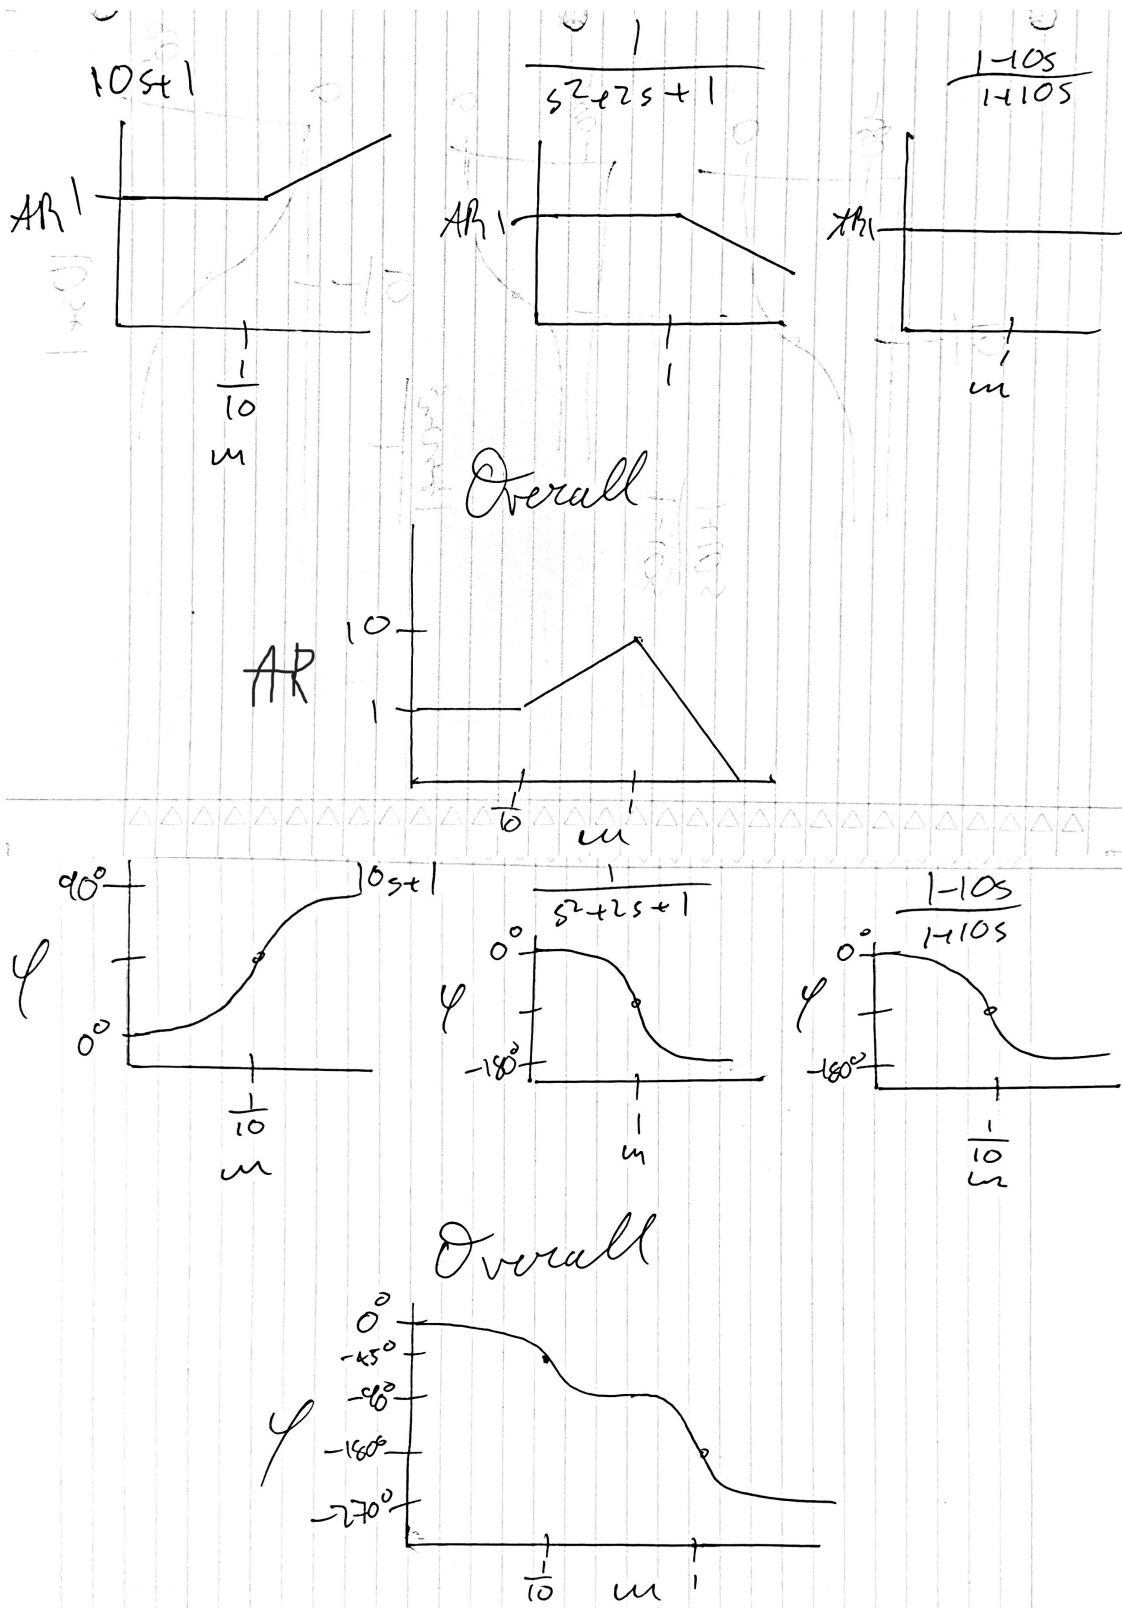 10s+1
1
s²+2s+1
1-10s
1+10s
AR 1
AR 1
AR 1
1
10
ω
1
1
ω
Overall
AR
10
1
1
10
1
ω
90°
φ
0°
10s+1
1
10
ω
1
s²+2s+1
0°
φ
-180°
1
ω
1-10s
1+10s
0°
φ
-180°
1
10
ω
Overall
0°
-45°
-90°
φ
-180°
-270°
1
10
ω
1